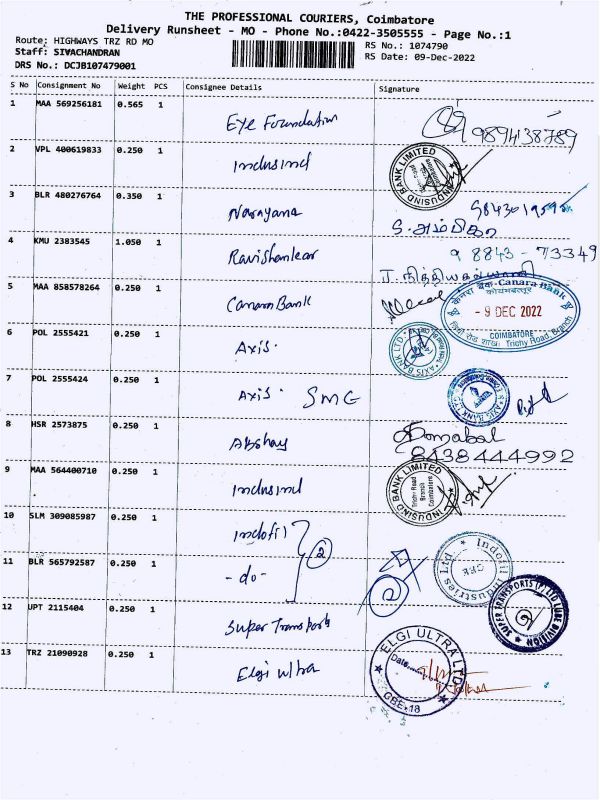 THE PROFESSIONAL COURIERS, Coimbatore
Delivery Runsheet - MO - Phone No.:0422-3505555 - Page No.:1
Route: HIGHWAYS TRZ RD MO
RS No.: 1074790
Staff: SIVACHANDRAN
RS Date: 09-Dec-2022
DRS No.: DCJB107479001
S No Consignment No Weight PCS Consignee Details Signature
1 MAA 569256181 0.565 1 Eye Foundation 9894138789
2 VPL 400619833 0.250 1 Indusind INDUSIND BANK LIMITED
3 BLR 480276764 0.350 1 Narayana
S. அம்பிகா
4 KMU 2383545 1.050 1 Ravishankar 9 8843 - 73349
5 MAA 858578264 0.250 1 Canara Bank केनरा बैंक-Canara Bank
कोयम्बत्तूर
- 9 DEC 2022
COIMBATORE
Trichy Road, Branch
6 POL 2555421 0.250 1 Axis. AXIS BANK LTD
7 POL 2555424 0.250 1 Axis. SMG AXIS BANK LTD
8 HSR 2573875 0.250 1 Akshay 8438444992
9 MAA 564400710 0.250 1 Indusind INDUSIND BANK LIMITED
Trichy Road
Branch
Coimbatore
10 SLM 309085987 0.250 1 Indofil
2
11 BLR 565792587 0.250 1 - do - 2 Indofil Industries Ltd. CBE
12 UPT 2115404 0.250 1 Super Transports SUPER TRANSPORTS (P) LTD LUBE DIVISION
13 TRZ 21090928 0.250 1 Elgi Ultra ELGI ULTRA LTD
Date
CBE-18